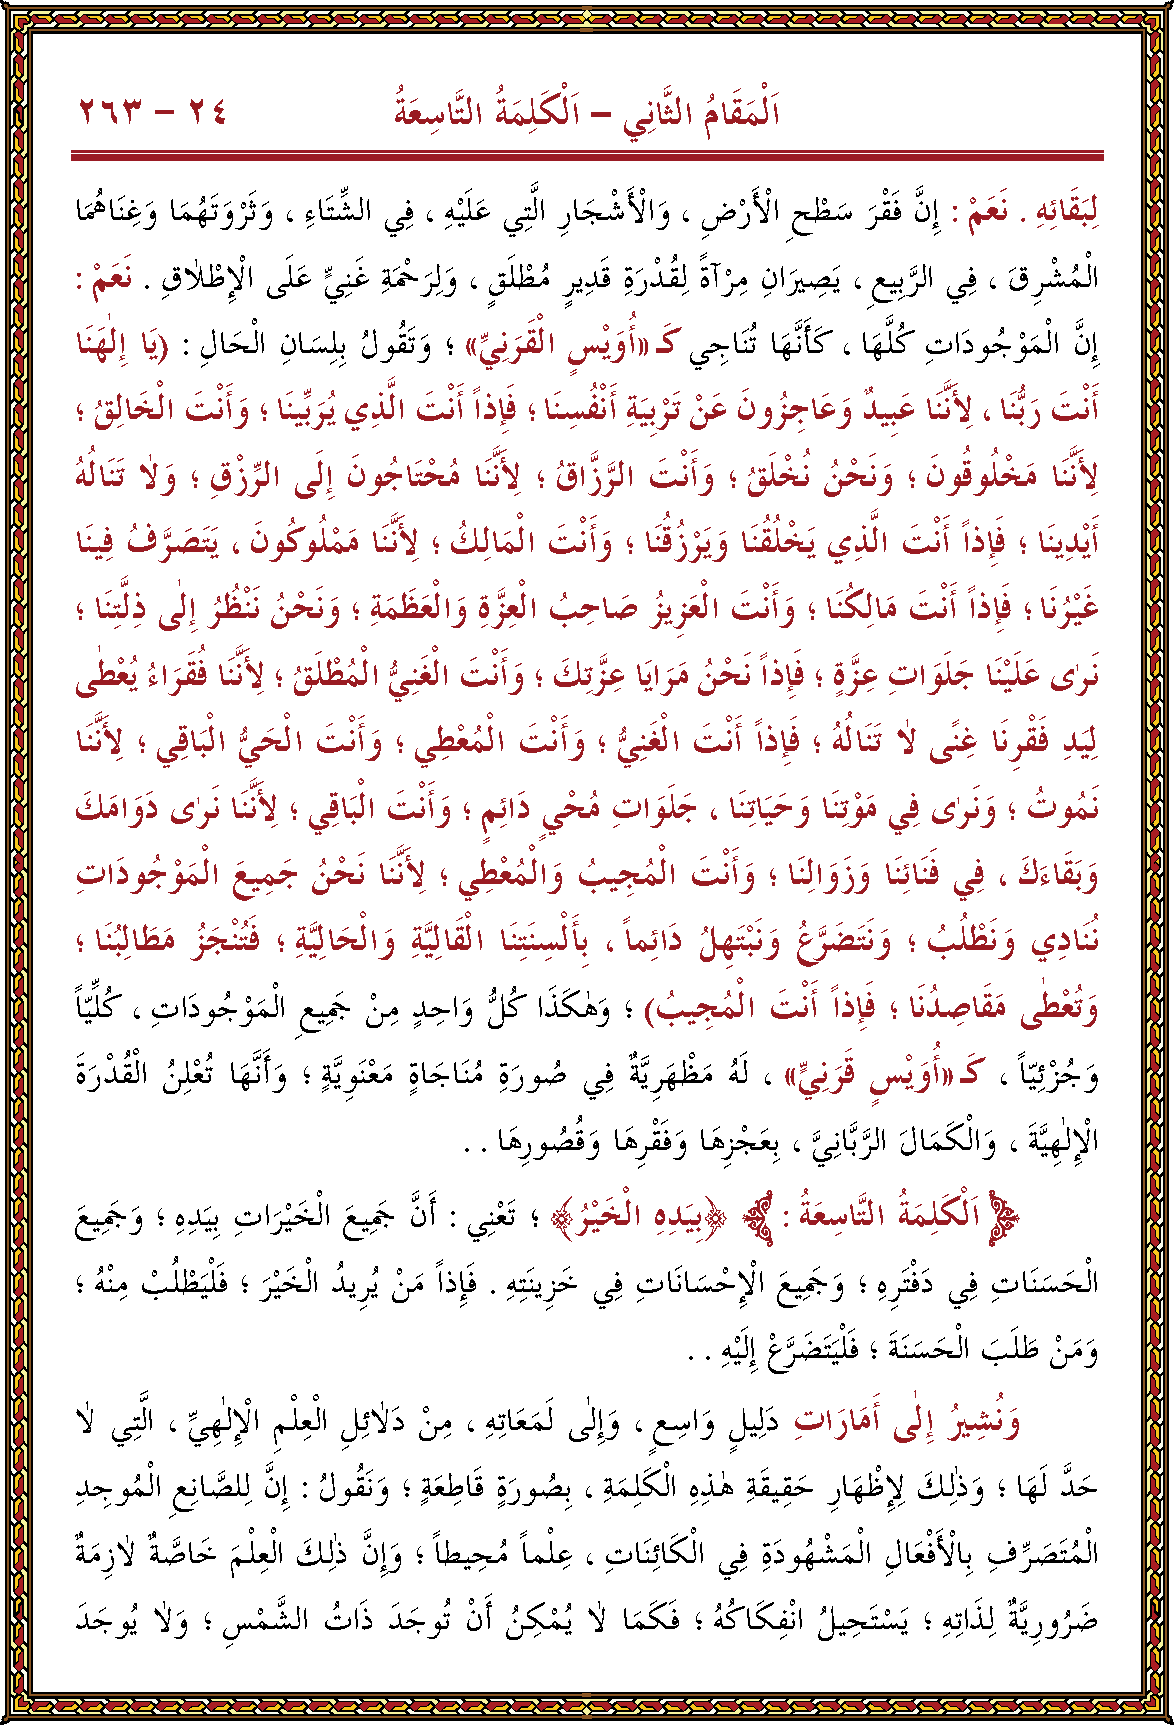 اَلْمَقَامُ الثَّانِي – اَلْكَلِمَةُ التَّاسِعَةُ ٢٤ – ٢٦٣
لِبَقَائِهِ . نَعَمْ : إِنَّ فَقْرَ سَطْحِ الْأَرْضِ ، وَالْأَشْجَارِ الَّتِي عَلَيْهِ ، فِي الشِّتَاءِ ، وَثَرْوَتَهُمَا وَغِنَاهُمَا
الْمُشْرِقَ ، فِي الرَّبِيعِ ، يَصِيرَانِ مِرْآةً لِقُدْرَةِ قَدِيرٍ مُطْلَقٍ ، وَلِرَحْمَةِ غَنِيٍّ عَلَى الْإِطْلَاقِ . نَعَمْ :
إِنَّ الْمَوْجُودَاتِ كُلَّهَا ، كَأَنَّهَا تُنَاجِي كَـ «أُوَيْسٍ الْقَرَنِيِّ» ؛ وَتَقُولُ بِلِسَانِ الْحَالِ : (يَا إِلٰهَنَا
أَنْتَ رَبُّنَا ، لِأَنَّنَا عَبِيدٌ وَعَاجِزُونَ عَنْ تَرْبِيَةِ أَنْفُسِنَا ؛ فَإِذاً أَنْتَ الَّذِي يُرَبِّينَا ؛ وَأَنْتَ الْخَالِقُ ؛
لِأَنَّنَا مَخْلُوقُونَ ؛ وَنَحْنُ نُخْلَقُ ؛ وَأَنْتَ الرَّزَّاقُ ؛ لِأَنَّنَا مُحْتَاجُونَ إِلَى الرِّزْقِ ؛ وَلَا تَنَالُهُ
أَيْدِينَا ؛ فَإِذاً أَنْتَ الَّذِي يَخْلُقُنَا وَيَرْزُقُنَا ؛ وَأَنْتَ الْمَالِكُ ؛ لِأَنَّنَا مَمْلُوكُونَ ، يَتَصَرَّفُ فِينَا
غَيْرُنَا ؛ فَإِذاً أَنْتَ مَالِكُنَا ؛ وَأَنْتَ الْعَزِيزُ صَاحِبُ الْعِزَّةِ وَالْعَظَمَةِ ؛ وَنَحْنُ نَنْظُرُ إِلٰى ذِلَّتِنَا ؛
نَرٰى عَلَيْنَا جَلَوَاتِ عِزَّةٍ ؛ فَإِذاً نَحْنُ مَرَايَا عِزَّتِكَ ؛ وَأَنْتَ الْغَنِيُّ الْمُطْلَقُ ؛ لِأَنَّنَا فُقَرَاءُ يُعْطٰى
لِيَدِ فَقْرِنَا غِنًى لَا تَنَالُهُ ؛ فَإِذاً أَنْتَ الْغَنِيُّ ؛ وَأَنْتَ الْمُعْطِي ؛ وَأَنْتَ الْحَيُّ الْبَاقِي ؛ لِأَنَّنَا
نَمُوتُ ؛ وَنَرٰى فِي مَوْتِنَا وَحَيَاتِنَا ، جَلَوَاتِ مُحْيٍ دَائِمٍ ؛ وَأَنْتَ الْبَاقِي ؛ لِأَنَّنَا نَرٰى دَوَامَكَ
وَبَقَاءَكَ ، فِي فَنَائِنَا وَزَوَالِنَا ؛ وَأَنْتَ الْمُجِيبُ وَالْمُعْطِي ؛ لِأَنَّنَا نَحْنُ جَمِيعَ الْمَوْجُودَاتِ
نُنَادِي وَنَطْلُبُ ؛ وَنَتَضَرَّعُ وَنَبْتَهِلُ دَائِماً ، بِأَلْسِنَتِنَا الْقَالِيَّةِ وَالْحَالِيَّةِ ؛ فَتُنْجَزُ مَطَالِبُنَا ؛
وَتُعْطٰى مَقَاصِدُنَا ؛ فَإِذاً أَنْتَ الْمُجِيبُ) ؛ وَهٰكَذَا كُلُّ وَاحِدٍ مِنْ جَمِيعِ الْمَوْجُودَاتِ ، كُلِّيّاً
وَجُزْئِيّاً ، كَـ «أُوَيْسٍ قَرَنِيٍّ» ، لَهُ مَظْهَرِيَّةٌ فِي صُورَةِ مُنَاجَاةٍ مَعْنَوِيَّةٍ ؛ وَأَنَّهَا تُعْلِنُ الْقُدْرَةَ
الْإِلٰهِيَّةَ ، وَالْكَمَالَ الرَّبَّانِيَّ ، بِعَجْزِهَا وَفَقْرِهَا وَقُصُورِهَا . .
اَلْكَلِمَةُ التَّاسِعَةُ : ﴿بِيَدِهِ الْخَيْرُ﴾ ؛ تَعْنِي : أَنَّ جَمِيعَ الْخَيْرَاتِ بِيَدِهِ ؛ وَجَمِيعَ
الْحَسَنَاتِ فِي دَفْتَرِهِ ؛ وَجَمِيعَ الْإِحْسَانَاتِ فِي خَزِينَتِهِ . فَإِذاً مَنْ يُرِيدُ الْخَيْرَ ؛ فَلْيَطْلُبْ مِنْهُ ؛
وَمَنْ طَلَبَ الْحَسَنَةَ ؛ فَلْيَتَضَرَّعْ إِلَيْهِ . .
وَنُشِيرُ إِلٰى أَمَارَاتِ دَلِيلٍ وَاسِعٍ ، وَإِلٰى لَمَعَتِهِ ، مِنْ دَلَائِلِ الْعِلْمِ الْإِلٰهِيِّ ، الَّتِي لَا
حَدَّ لَهَا ؛ وَذٰلِكَ لِإِظْهَارِ حَقِيقَةِ هٰذِهِ الْكَلِمَةِ ، بِصُورَةٍ قَاطِعَةٍ ؛ وَنَقُولُ : إِنَّ لِلصَّانِعِ الْمُوجِدِ
الْمُتَصَرِّفِ بِالْأَفْعَالِ الْمَشْهُودَةِ فِي الْكَائِنَاتِ ، عِلْماً مُحِيطاً ؛ وَإِنَّ ذٰلِكَ الْعِلْمَ خَاصَّةٌ لَازِمَةٌ
ضَرُورِيَّةٌ لِذَاتِهِ ؛ يَسْتَحِيلُ انْفِكَاكُهُ ؛ فَكَمَا لَا يُمْكِنُ أَنْ تُوجَدَ ذَاتُ الشَّمْسِ ؛ وَلَا يُوجَدَ